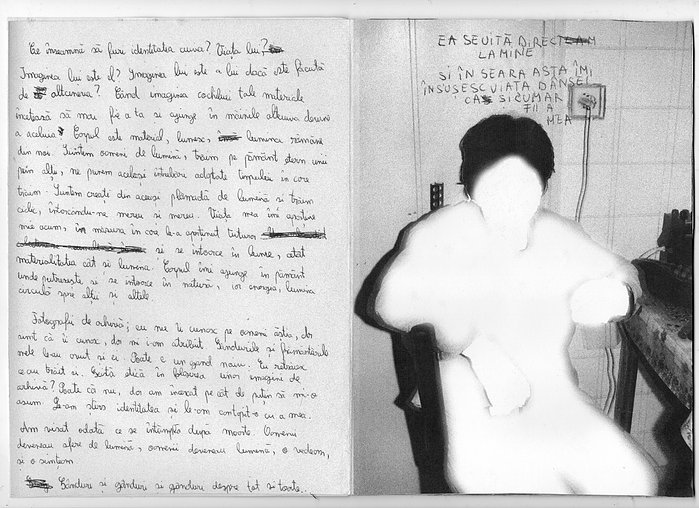 Ce înseamnă să furi identitatea cuiva? Viața lui?
Imaginea lui este el? Imaginea lui este a lui dacă este făcută
de altcineva? Când imaginea ochiului tale materiale
încetează să mai fie a ta și ajunge în mâinile altcuiva devine
a aceluia? Corpul este material, lumesc, lumina rămâne
din noi. Suntem oameni de lumină, trăim pe pământ etern unii
prin alții, ne punem aceleași întrebări adaptate timpului în care
trăim. Suntem creați din aceeași plămadă de lumină și trăim
ciclic, întorcându-ne mereu și mereu. Viața mea îmi aparține
mie acum, în măsura în care le-a aparținut tuturor
și se întoarce în lume, atât
materialitatea cât și lumina. Corpul îmi ajunge în pământ
unde putrezește și se întoarce în natură, iar energia, lumina
circulă spre alții și altele.
Fotografii de arhivă; eu nu îi cunosc pe oamenii ăștia, dar
simt că îi cunosc, dar mi i-am atribuit. Gândurile și frământările
mele le-au avut și ei. Poate e un gând naiv. Eu retrăiesc
ce-au trăit ei. Există etică în folosirea unor imagini de
arhivă? Poate că nu, dar am încercat pe cât de puțin să mi-o
asum. Le-am șters identitatea și le-am contopit-o cu a mea.
Am visat odată ce se întâmpla după moarte. Oamenii
deveneau sfere de lumină, oamenii deveneau lumină, o vedeam,
și o simțeam.
Gânduri și gânduri și gânduri despre tot și toate.
EA SE UITĂ DIRECT
LA MINE
ȘI ÎN SEARA ASTA ÎMI
ÎNSUȘESC VIAȚA DÂNSEI
CA ȘI CUM AR
FI A
MEA